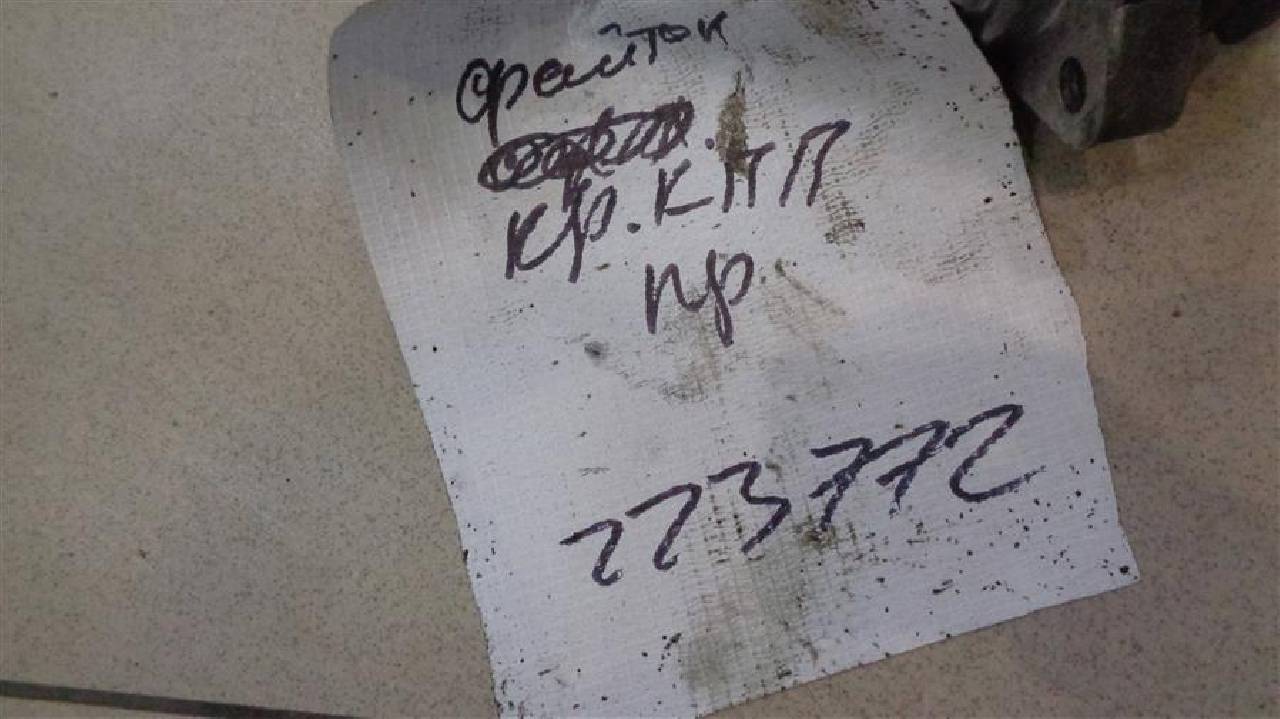 Фрайток
кр. КПП
пр
223772